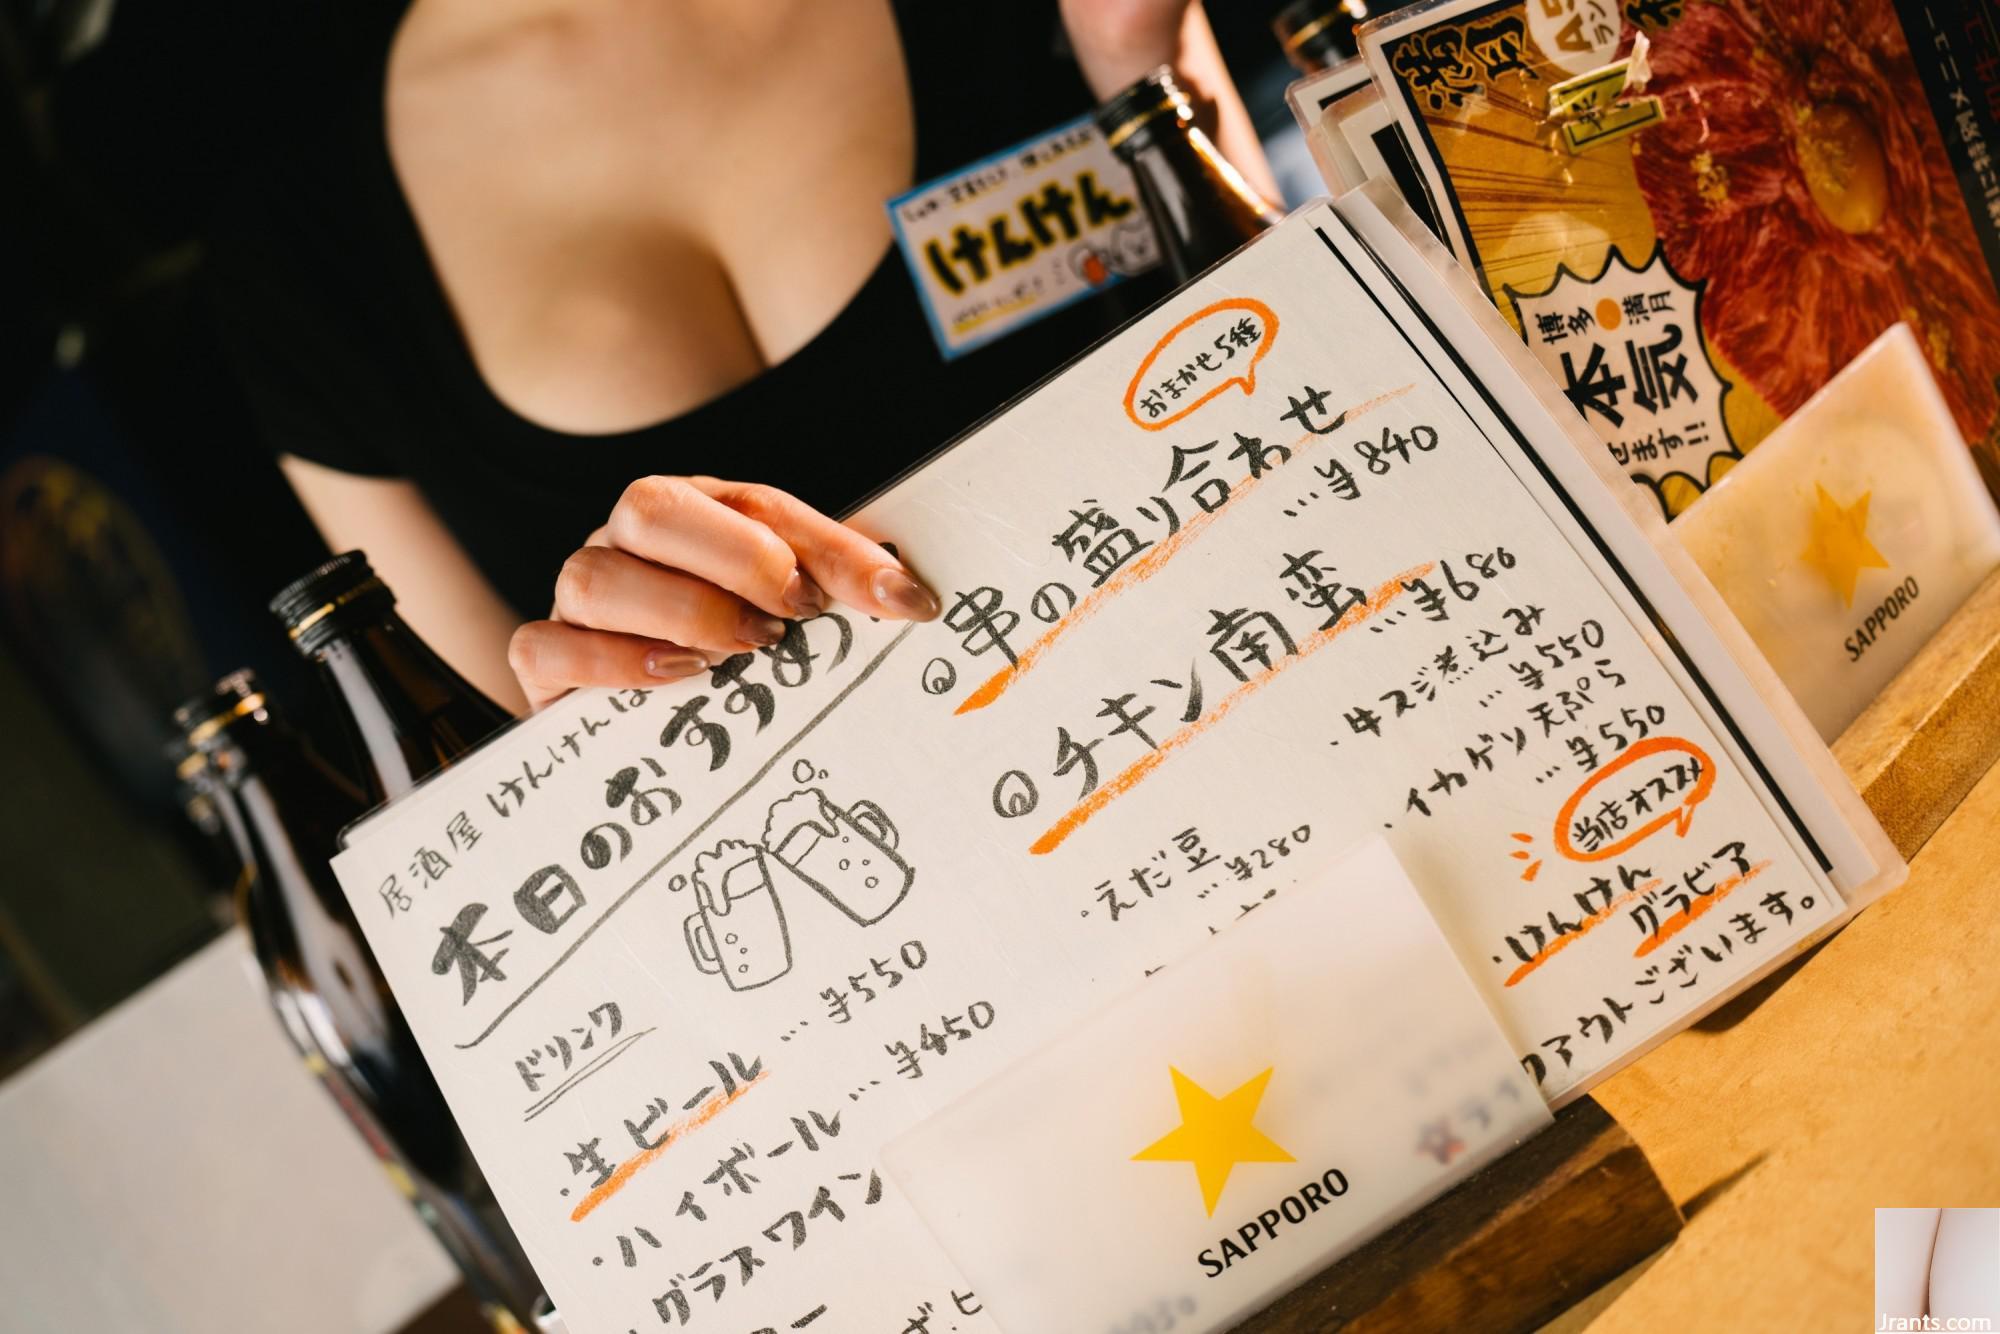 けんけん
居酒屋 けんけんは
本日のおすすめ!
ドリンク
・生ビール … ¥550
・ハイボール … ¥450
グラスワイン
おまかせ5種
串の盛り合わせ
… ¥840
チキン南蛮
… ¥680
・えだ豆
… ¥280
・牛スジ煮込み
… ¥550
・イカゲソ天ぷら
… ¥550
当店オススメ
・けんけん
グラビア
クアウトございます。
SAPPORO
満月
博多 満月
本気
せます!!
SAPPORO
Jrants.com